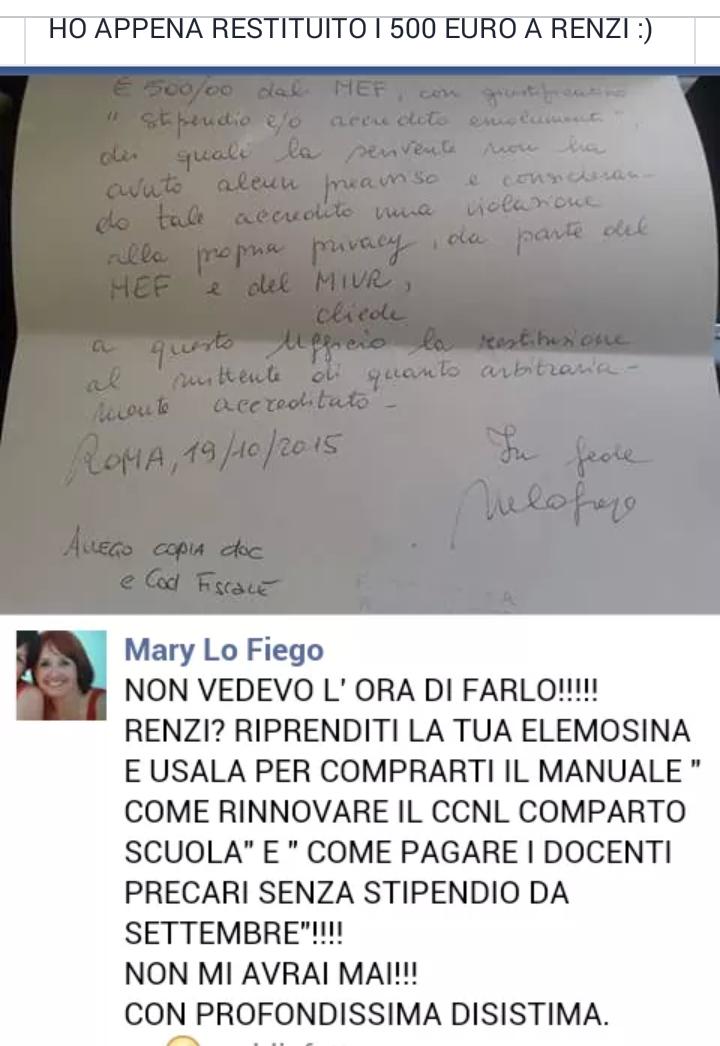 HO APPENA RESTITUITO I 500 EURO A RENZI :)
€ 500/00 dal MEF, con giustificativo
" stipendio e/o accredito emolumenti",
dei quali la scrivente non ha
avuto alcun preavviso e consideran-
do tale accredito una violazione
alla propria privacy, da parte del
MEF e del MIUR,
chiede
a questo Ufficio la restituzione
al mittente di quanto arbitraria-
mente accreditato -
ROMA, 19/10/2015
In fede
ALLEGO COPIA doc
e Cod FISCALE
Mary Lo Fiego
NON VEDEVO L' ORA DI FARLO!!!!!
RENZI? RIPRENDITI LA TUA ELEMOSINA
E USALA PER COMPRARTI IL MANUALE "
COME RINNOVARE IL CCNL COMPARTO
SCUOLA" E " COME PAGARE I DOCENTI
PRECARI SENZA STIPENDIO DA
SETTEMBRE"!!!!
NON MI AVRAI MAI!!!
CON PROFONDISSIMA DISISTIMA.